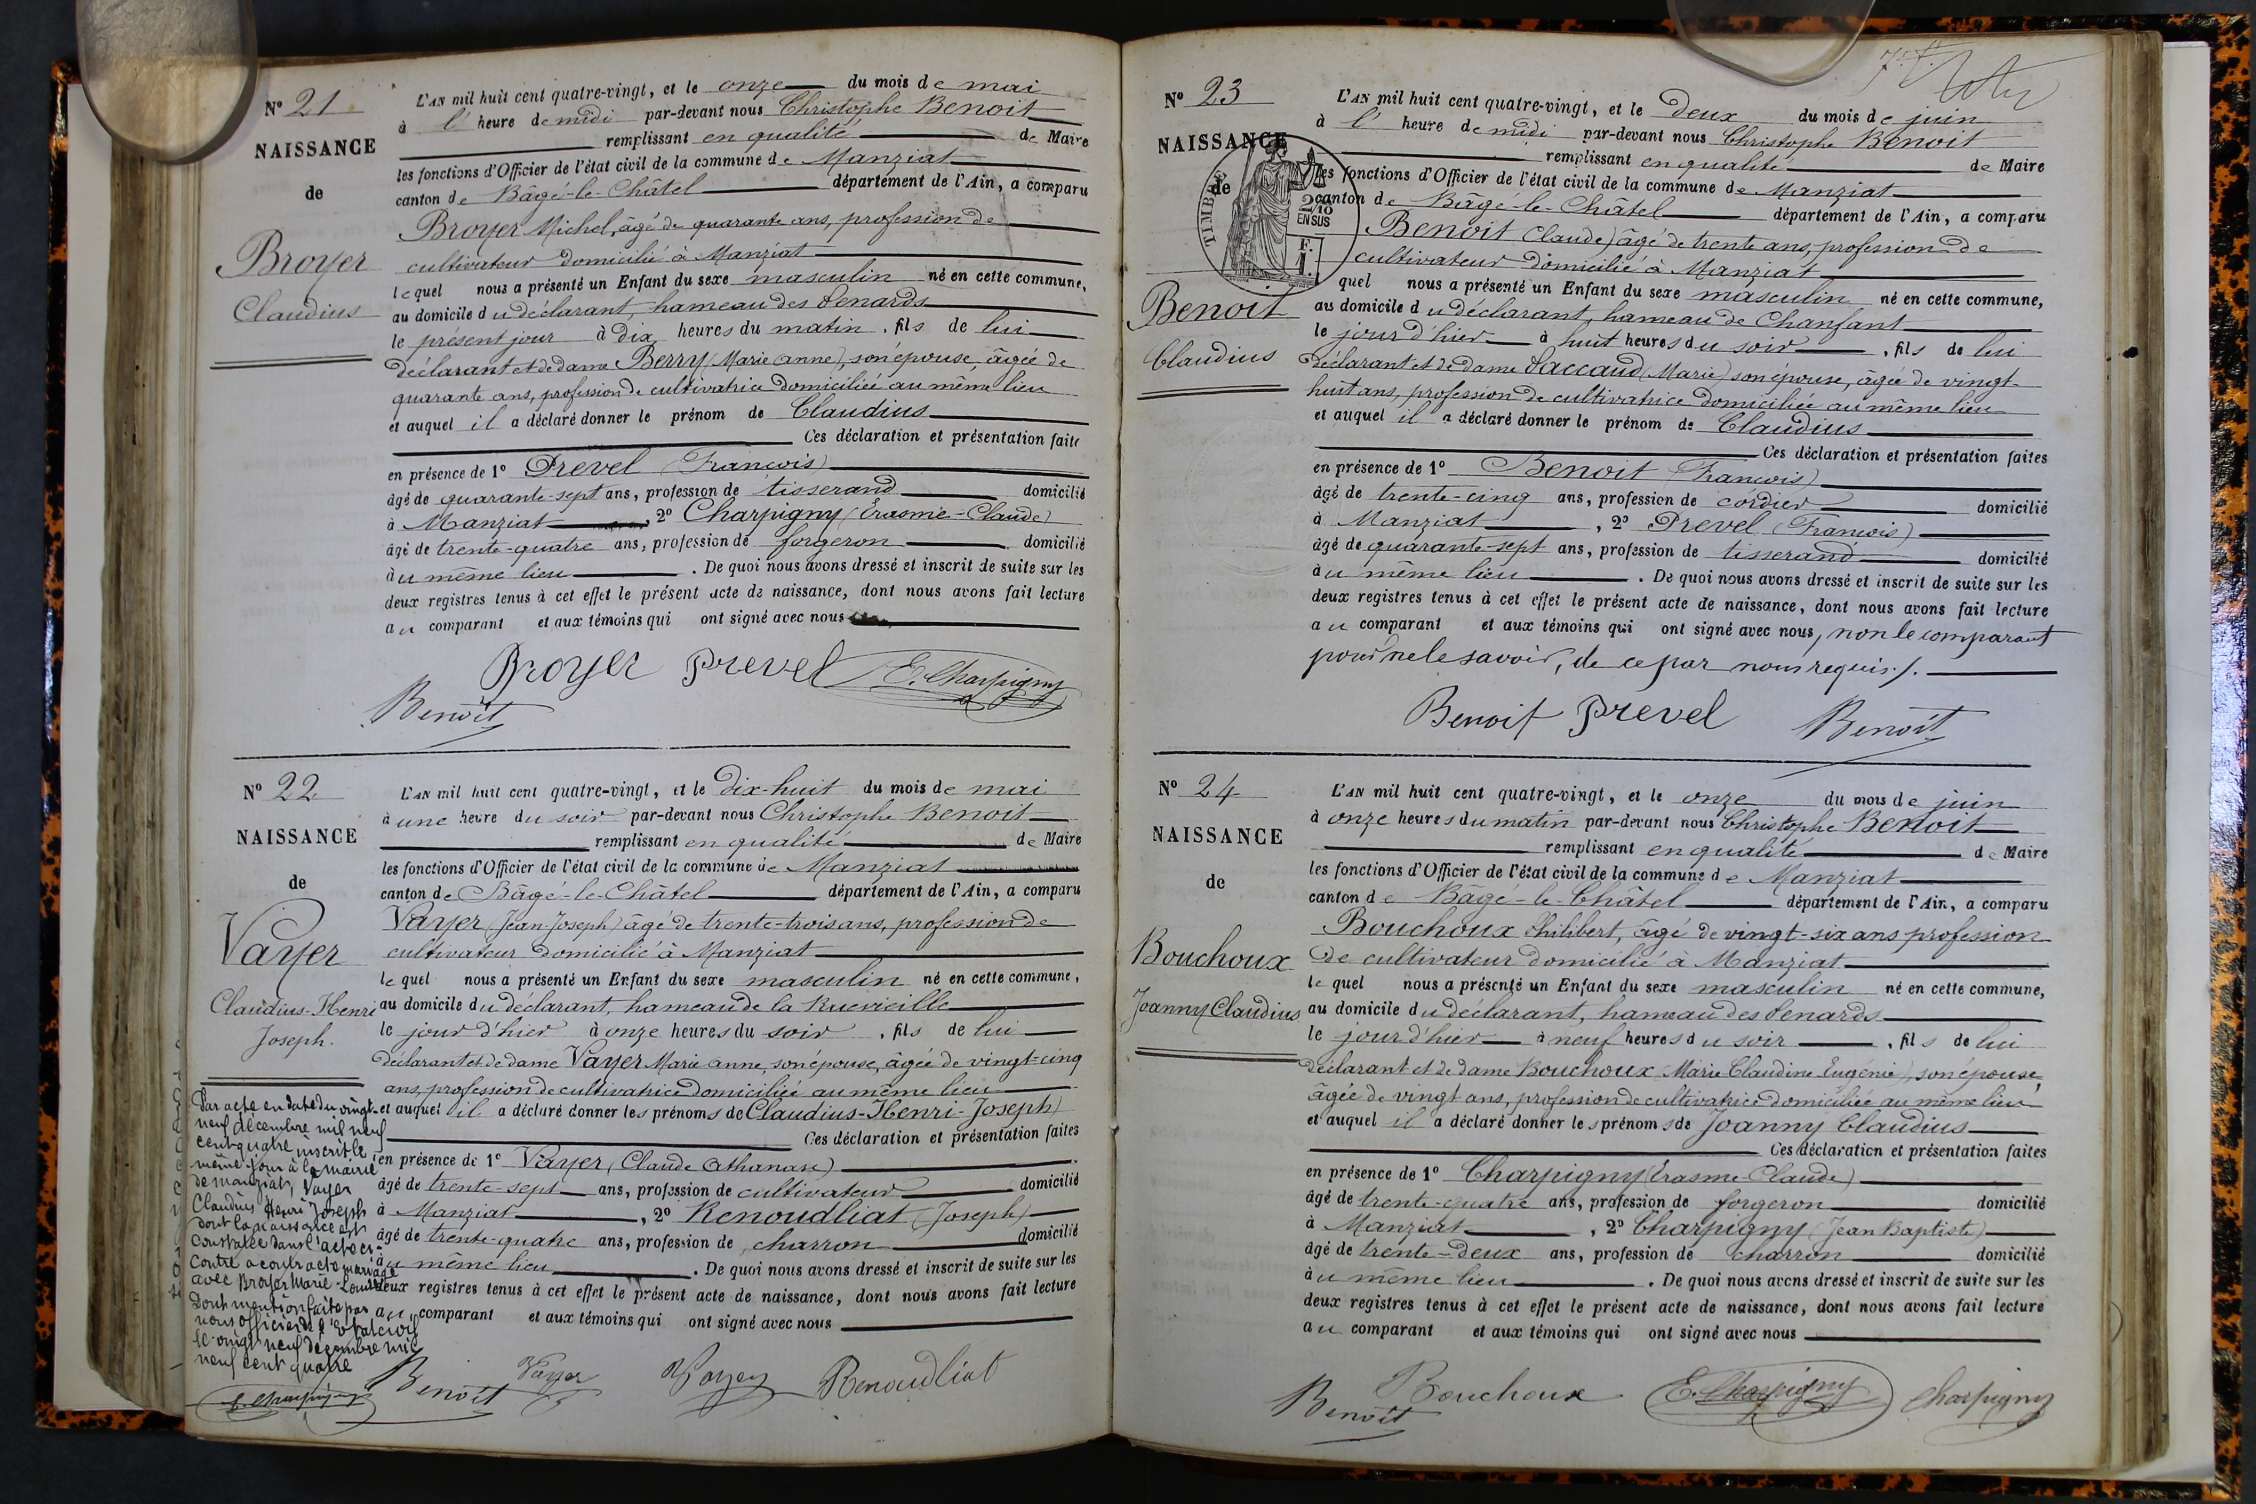 N° 21
NAISSANCE
de
Broyer
Claudius
L'AN mil huit cent quatre-vingt, et le onze du mois de mai
à l' heure de midi par-devant nous Christophe Benoit
remplissant en qualité de Maire
les fonctions d'Officier de l'état civil de la commune de Manziat
canton de Bâgé-le-Châtel département de l'Ain, a comparu
Broyer Michel, âgé de quarante ans, profession de
cultivateur domicilié à Manziat
lequel nous a présenté un Enfant du sexe masculin né en cette commune,
au domicile du déclarant, hameau des Denards
le présent jour à dix heures du matin, fils de lui
déclarant et de dame Berry (Marie Anne), son épouse, âgée de
quarante ans, profession de cultivatrice domiciliée au même lieu
et auquel il a déclaré donner le prénom de Claudius
Ces déclaration et présentation faite
en présence de 1° Prevel (Francois)
âgé de quarante-sept ans, profession de tisserand domicilié
à Manziat, 2° Charpigny (Erasme-Claude)
âgé de trente-quatre ans, profession de forgeron domicilié
au même lieu. De quoi nous avons dressé et inscrit de suite sur les
deux registres tenus à cet effet le présent acte de naissance, dont nous avons fait lecture
au comparant et aux témoins qui ont signé avec nous
Broyer Prevel E. Charpigny
Benoît
N° 22
NAISSANCE
de
Vayer
Claudius-Henri
Joseph.
L'AN mil huit cent quatre-vingt, et le dix-huit du mois de mai
à une heure du soir par-devant nous Christophe Benoit
remplissant en qualité de Maire
les fonctions d'Officier de l'état civil de la commune de Manziat
canton de Bâgé-le-Châtel département de l'Ain, a comparu
Vayer (Jean-Joseph) âgé de trente-trois ans, profession de
cultivateur domicilié à Manziat
lequel nous a présenté un Enfant du sexe masculin né en cette commune,
au domicile du déclarant, hameau de la Ruevieille
le jour d'hier à onze heures du soir, fils de lui
déclarant et de dame Vayer Marie Anne, son épouse, âgée de vingt-cinq
ans, profession de cultivatrice domiciliée au même lieu
et auquel il a déclaré donner les prénoms de Claudius-Henri-Joseph)
Ces déclaration et présentation faites
en présence de 1° Vayer (Claude Athanase)
âgé de trente-sept ans, profession de cultivateur domicilié
à Manziat, 2° Renoudliat (Joseph)
âgé de trente-quatre ans, profession de charron domicilié
au même lieu. De quoi nous avons dressé et inscrit de suite sur les
deux registres tenus à cet effet le présent acte de naissance, dont nous avons fait lecture
au comparant et aux témoins qui ont signé avec nous
Par acte en date du vingt-
neuf décembre mil neuf
cent quatre inscrit le
même jour à la mairie
de Manziat, Vayer
Claudius Henri Joseph
dont la naissance est
constatée dans l'acte ci-
contre a contracté mariage
avec Broyer Marie-Louise
Dont mention faite par
nous officier de l'Etat civil
le vingt neuf décembre mil
neuf cent quatre
E. Charpigny
Benoît Vayer Vayer Renoudliat
N° 23
NAISSANCE
de
TIMBRE
2/10
EN SUS
F.
1.
Benoit
Claudius
L'AN mil huit cent quatre-vingt, et le deux du mois de juin
à l' heure de midi par-devant nous Christophe Benoit
remplissant en qualité de Maire
les fonctions d'Officier de l'état civil de la commune de Manziat
canton de Bâgé-le-Châtel département de l'Ain, a comparu
Benoit (Claude) âgé de trente ans, profession de
cultivateur domicilié à Manziat
quel nous a présenté un Enfant du sexe masculin né en cette commune,
au domicile du déclarant, hameau de Chanfant
le jour d'hier à huit heures du soir, fils de lui
déclarant et de dame Daccaud (Marie) son épouse, âgée de vingt-
huit ans, profession de cultivatrice domiciliée au même lieu
et auquel il a déclaré donner le prénom de Claudius
Ces déclaration et présentation faites
en présence de 1° Benoit (Francois)
âgé de trente-cinq ans, profession de cordier domicilié
à Manziat, 2° Prevel (Francois)
âgé de quarante-sept ans, profession de tisserand domicilié
au même lieu. De quoi nous avons dressé et inscrit de suite sur les
deux registres tenus à cet effet le présent acte de naissance, dont nous avons fait lecture
au comparant et aux témoins qui ont signé avec nous, non le comparant
pour ne le savoir, de ce par nous requis./.
Benoit Prevel Benoît
N° 24
NAISSANCE
de
Bouchoux
Joanny Claudius
L'AN mil huit cent quatre-vingt, et le onze du mois de juin
à onze heures du matin par-devant nous Christophe Benoit
remplissant en qualité de Maire
les fonctions d'Officier de l'état civil de la commune de Manziat
canton de Bâgé-le-Châtel département de l'Ain, a comparu
Bouchoux Philibert, âgé de vingt-six ans profession
de cultivateur domicilié à Manziat
lequel nous a présenté un Enfant du sexe masculin né en cette commune,
au domicile du déclarant, hameau des Denards
le jour d'hier à neuf heures du soir, fils de lui
déclarant et de dame Bouchoux (Marie Claudine Eugénie), son épouse,
âgée de vingt ans, profession de cultivatrice domiciliée au même lieu
et auquel il a déclaré donner les prénoms de Joanny Claudius
Ces déclaration et présentation faites
en présence de 1° Charpigny (Erasme-Claude)
âgé de trente-quatre ans, profession de forgeron domicilié
à Manziat, 2° Charpigny (Jean Baptiste)
âgé de trente-deux ans, profession de charron domicilié
au même lieu. De quoi nous avons dressé et inscrit de suite sur les
deux registres tenus à cet effet le présent acte de naissance, dont nous avons fait lecture
au comparant et aux témoins qui ont signé avec nous
Benoît Bouchoux E. Charpigny Charpigny